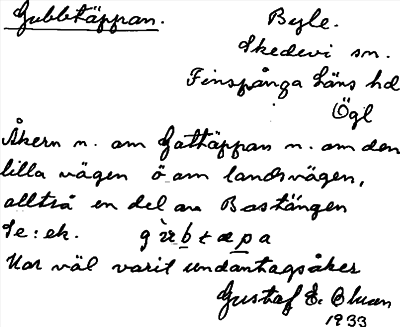 Gubbtäppan.
Byle.
Skedevi sn.
Finspånga läns hd
Ögl
Åkern n. om Gattäppan n. om den
lilla vägen ö om landsvägen,
alltså en del av Bastängen
Se: ek. gu̇btæpa
Har väl varit undantagsåker
Gustaf E:
1933